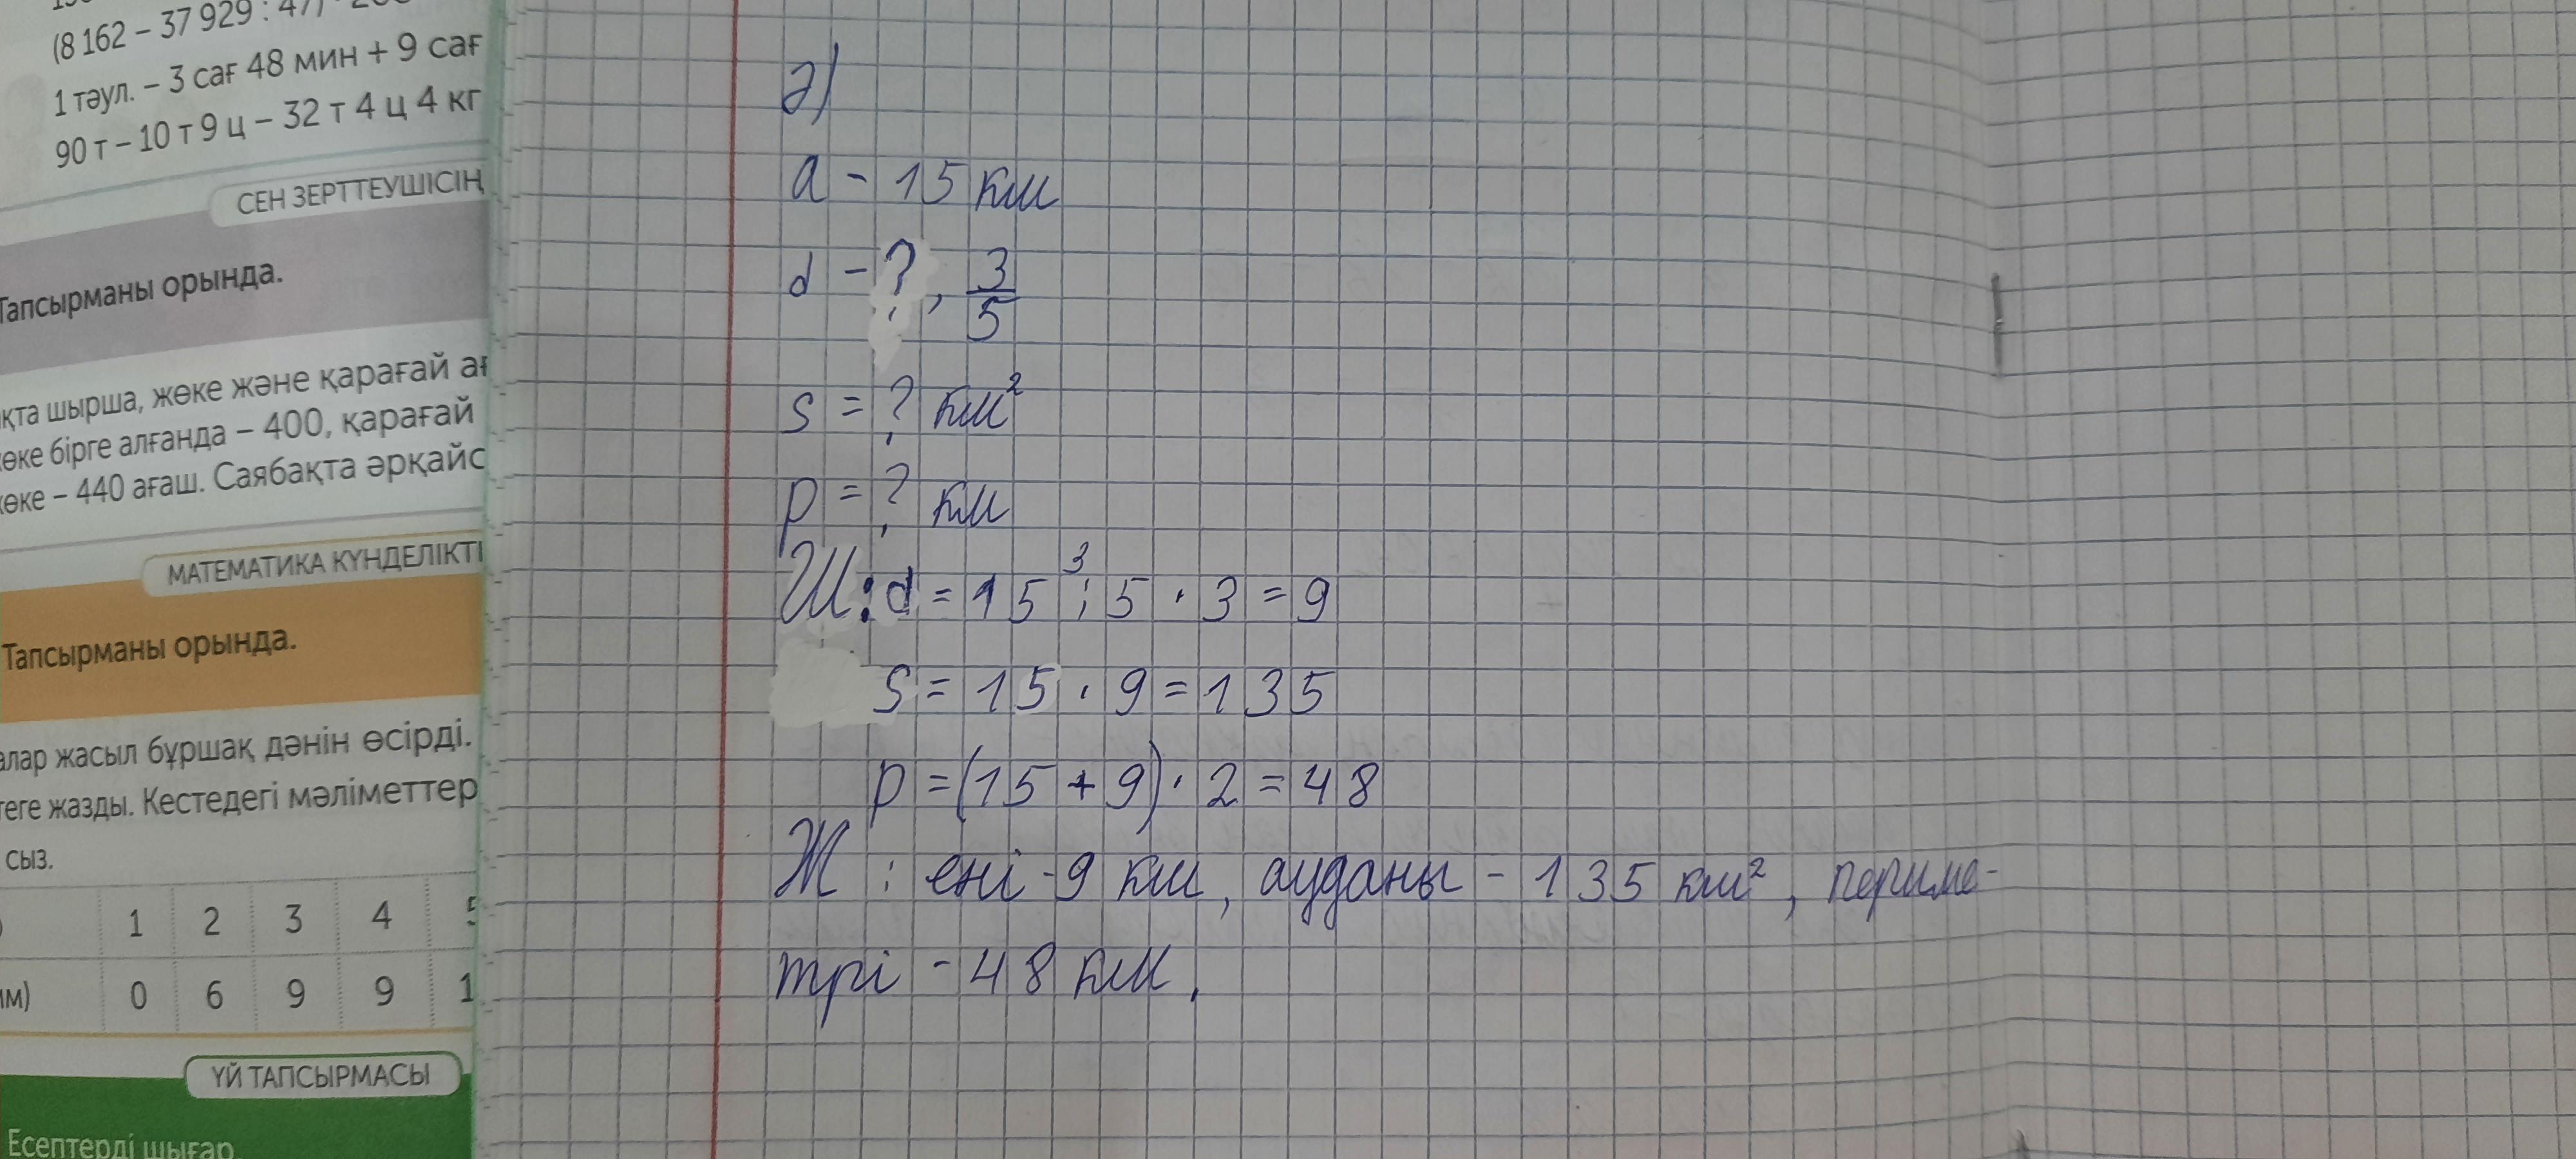 (8 162 – 37 929 : 47) ·
1 тәул. – 3 сағ 48 мин + 9 сағ
90 т – 10 т 9 ц – 32 т 4 ц 4 кг
СЕН ЗЕРТТЕУШІСІҢ
Тапсырманы орында.
қта шырша, жөке және қарағай ағ
өке бірге алғанда – 400, қарағай
өке – 440 ағаш. Саябақта әрқайс
МАТЕМАТИКА КҮНДЕЛІКТІ
Тапсырманы орында.
алар жасыл бұршақ дәнін өсірді.
теге жазды. Кестедегі мәліметтер
сыз.
) 1 2 3 4 5
мм) 0 6 9 9 1
ҮЙ ТАПСЫРМАСЫ
Есептерді шығар.
ә)
a - 15 км
d - ?, 3/5
s = ? км²
p = ? км
Ш: d = 15 : 5 · 3 = 9
3
S = 15 · 9 = 135
p = (15 + 9) · 2 = 48
Ж: ені - 9 км, ауданы - 135 км², периме-
трі - 48 км.